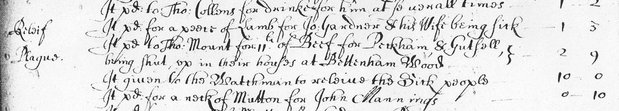 It pd. to Tho: Collens for drinke for him at severall times 1 - 2
Releif It pd. for a peece of Lamb for Jo: Gardner & his Wife being sick - 1 3
in It pd to Tho: Mount for 11 lb. of Beef for Peckham & Gutsell,
Plague. being shut up in their houses at Bettenham Wood } - 2 9
It given to the Watchman to releive the Sick people 10 - 0
It pd. for a neck of Mutton for John Mannings 0 - 10